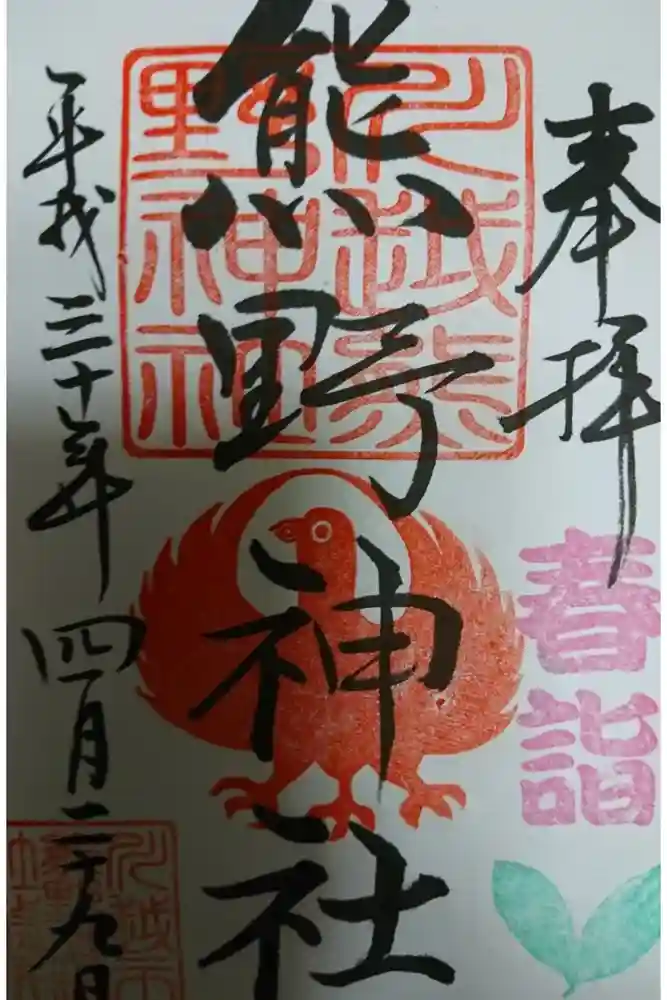 奉拝
春詣
熊野神社
川越熊
野神社
平成三十年四月二十九日